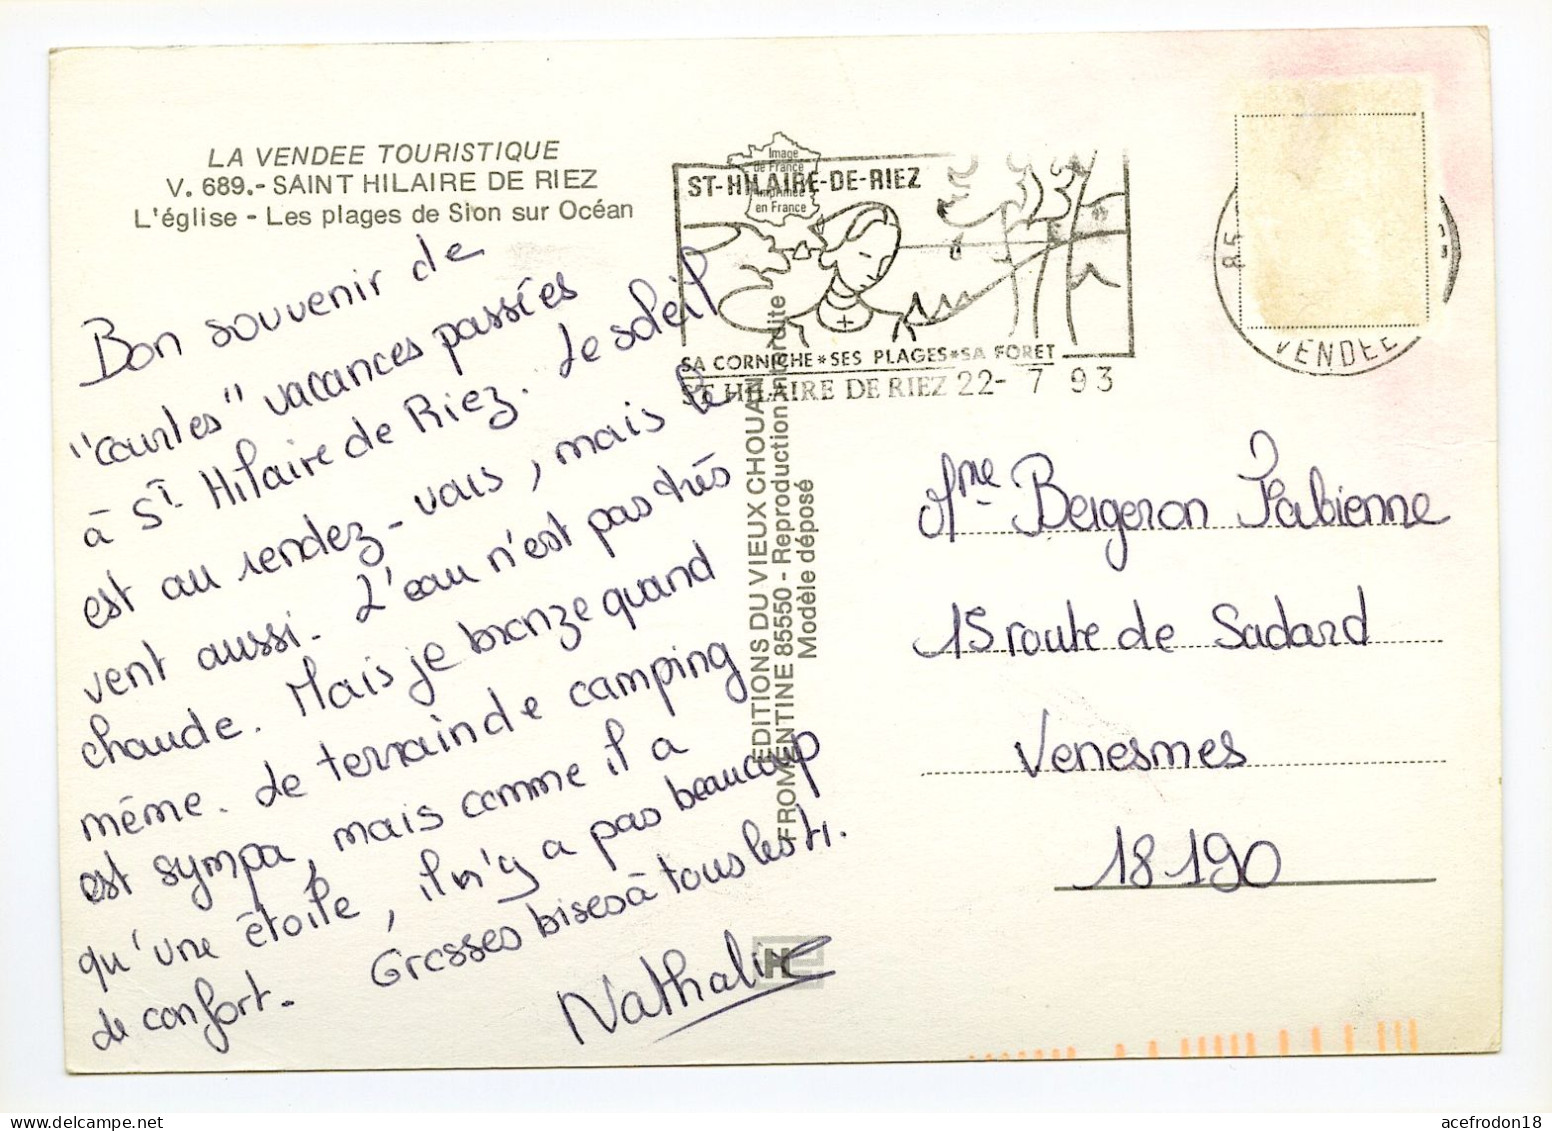 LA VENDEE TOURISTIQUE
V. 689.- SAINT HILAIRE DE RIEZ
L'église - Les plages de Sion sur Océan
Bon souvenir de
"courtes" vacances passées
à St Hilaire de Riez. Le soleil
est au rendez-vous, mais le
vent aussi. L'eau n'est pas très
chaude. Mais je bronze quand
même. Le terrain de camping
est sympa, mais comme il a
qu'une étoile, il n'y a pas beaucoup
de confort. Grosses bises à tous les 4.
Nathalie
Image
de France
imprimée
en France
ST-HILAIRE-DE-RIEZ
SA CORNICHE*SES PLAGES*SA FORET
ST HILAIRE DE RIEZ 22- 7 93
85
VENDEE
EDITIONS DU VIEUX CHOUAN
FROMENTINE 85550 - Reproduction interdite
Modèle déposé
H
Mme Bergeron Fabienne
15 route de Sadard
Venesmes
18190
acefrodon18